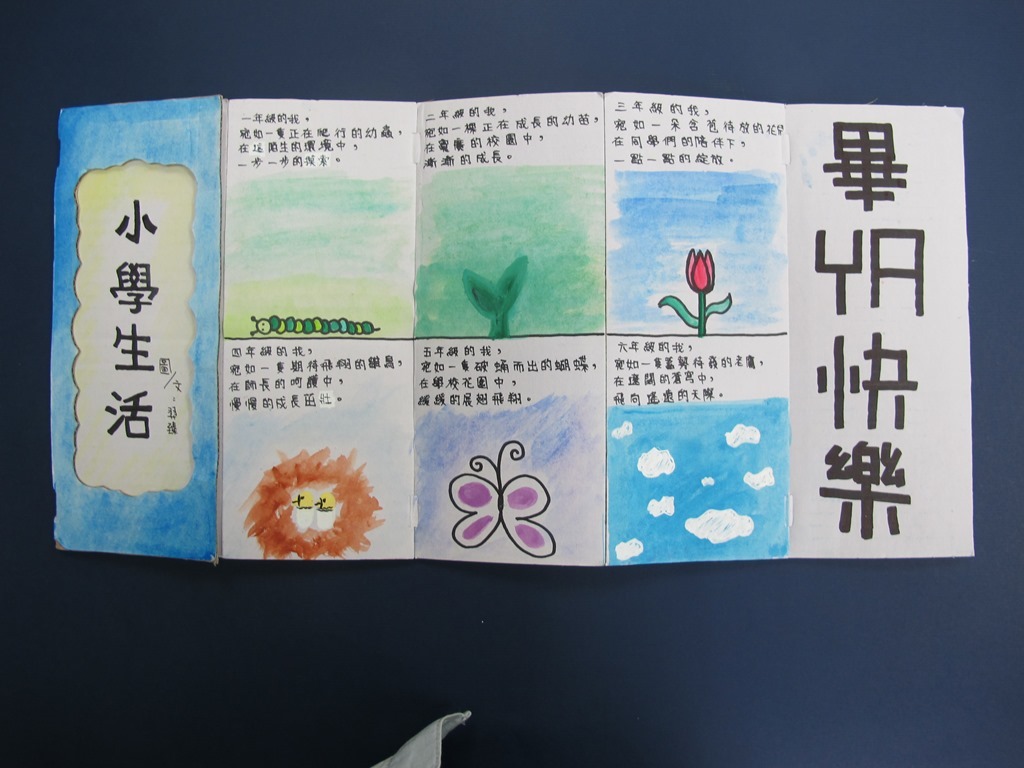 小學生活
圖/文:羿臻
一年級的我,
宛如一隻正在爬行的幼蟲,
在這陌生的環境中,
一步一步的探索。
二年級的我,
宛如一棵正在成長的幼苗,
在寬廣的校園中,
漸漸的成長。
三年級的我,
宛如一朵含苞待放的花朵
在同學們的陪伴下,
一點一點的綻放。
四年級的我,
宛如一隻期待飛翔的雛鳥,
在師長的呵護中,
慢慢的成長茁壯。
五年級的我,
宛如一隻破蛹而出的蝴蝶,
在學校花園中,
緩緩的展翅飛翔。
六年級的我,
宛如一隻蓄勢待發的老鷹,
在遼闊的蒼穹中,
飛向遙遠的天際。
畢
YA
快
樂